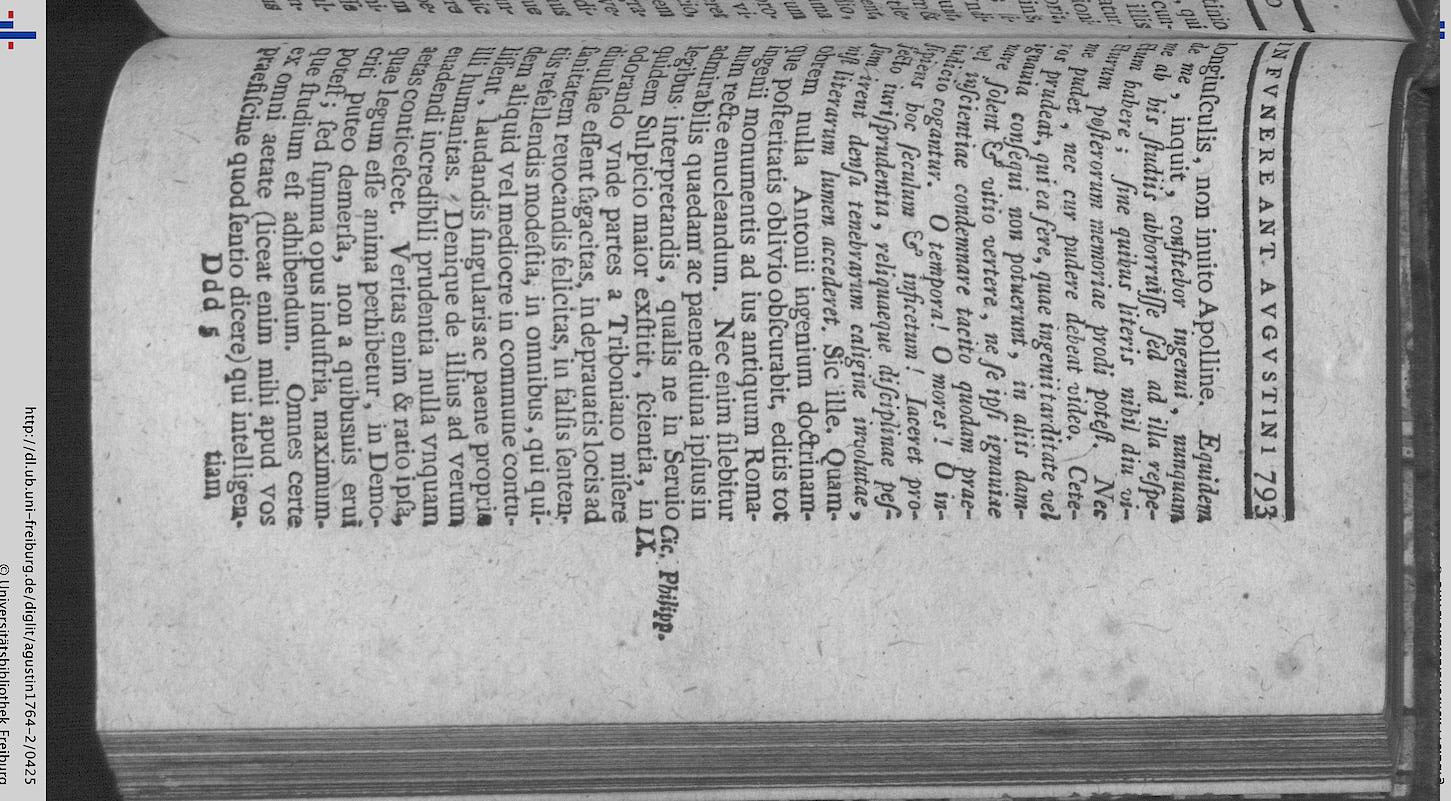 IN FVNERE ANT. AVGVSTINI 793
longiuſculis, non inuito Apolline. Equidem
de me, inquit, confiteor ingenui, nunquam
me ab his ſtudiis abhorruiſſe ſed ad illa reſpe-
ctum habere; ſine quibus literis nihil diu vi-
cturum poſterorum memoriae prodi poteſt. Nec
me pudet, nec cur pudere debeat video. Cete-
ros pudeat, qui ea fere, quae ingenii tarditate vel
ignauia conſequi non potuerunt, in aliis dam-
nare ſolent & vitio vertere, ne ſe ipſi ignauiae
vel inſcientiae condemnare tacito quodam prae-
iudicio cogantur. O tempora! O mores! O in-
ſipiens hoc ſeculum & inficetum! Iaceret pro-
fecto iuriſprudentia, reliquaeque diſciplinae peſ-
ſum irent denſa tenebrarum caligine inuolutae,
niſi literarum lumen accederet. Sic ille. Quam-
obrem nulla Antonii ingenium doctrinam-
que poſteritatis obliuio obſcurabit, editis tot
ingenii monumentis ad ius antiquum Roma-
num recte enucleandum. Nec enim ſilebitur
admirabilis quaedam ac paene diuina ipſius in
legibus interpretandis, qualis ne in Seruio
quidem Sulpicio maior exſtitit, ſcientia, in
odorando vnde partes a Triboniano miſere
diuulſae eſſent ſagacitas, in deprauatis locis ad
ſanitatem reuocandis felicitas, in falſis ſenten-
tis refellendis modeſtia, in omnibus, qui qui-
dem aliquid vel mediocre in commune contu-
liſſent, laudandis ſingularis ac paene propria
illi humanitas. Denique de illius ad verum
euadendi incredibili prudentia nulla vnquam
aetas conticeſcet. Veritas enim & ratio ipſa,
quae legum eſſe anima perhibetur, in Demo-
criti puteo demerſa, non a quibusuis erui
poteſt; ſed ſumma opus induſtria, maximum-
que ſtudium eſt adhibendum. Omnes certe
ex omni aetate (liceat enim mihi apud vos
praefiſcine quod ſentio dicere) qui intelligen-
Ddd 5
tiam
Cic. Philipp.
IX.
http://dl.ub.uni-freiburg.de/diglit/agustin1764-2/0425
© Universitätsbibliothek Freiburg